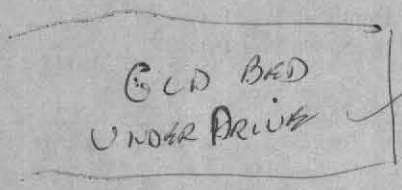 OLD BED
UNDER DRIVE